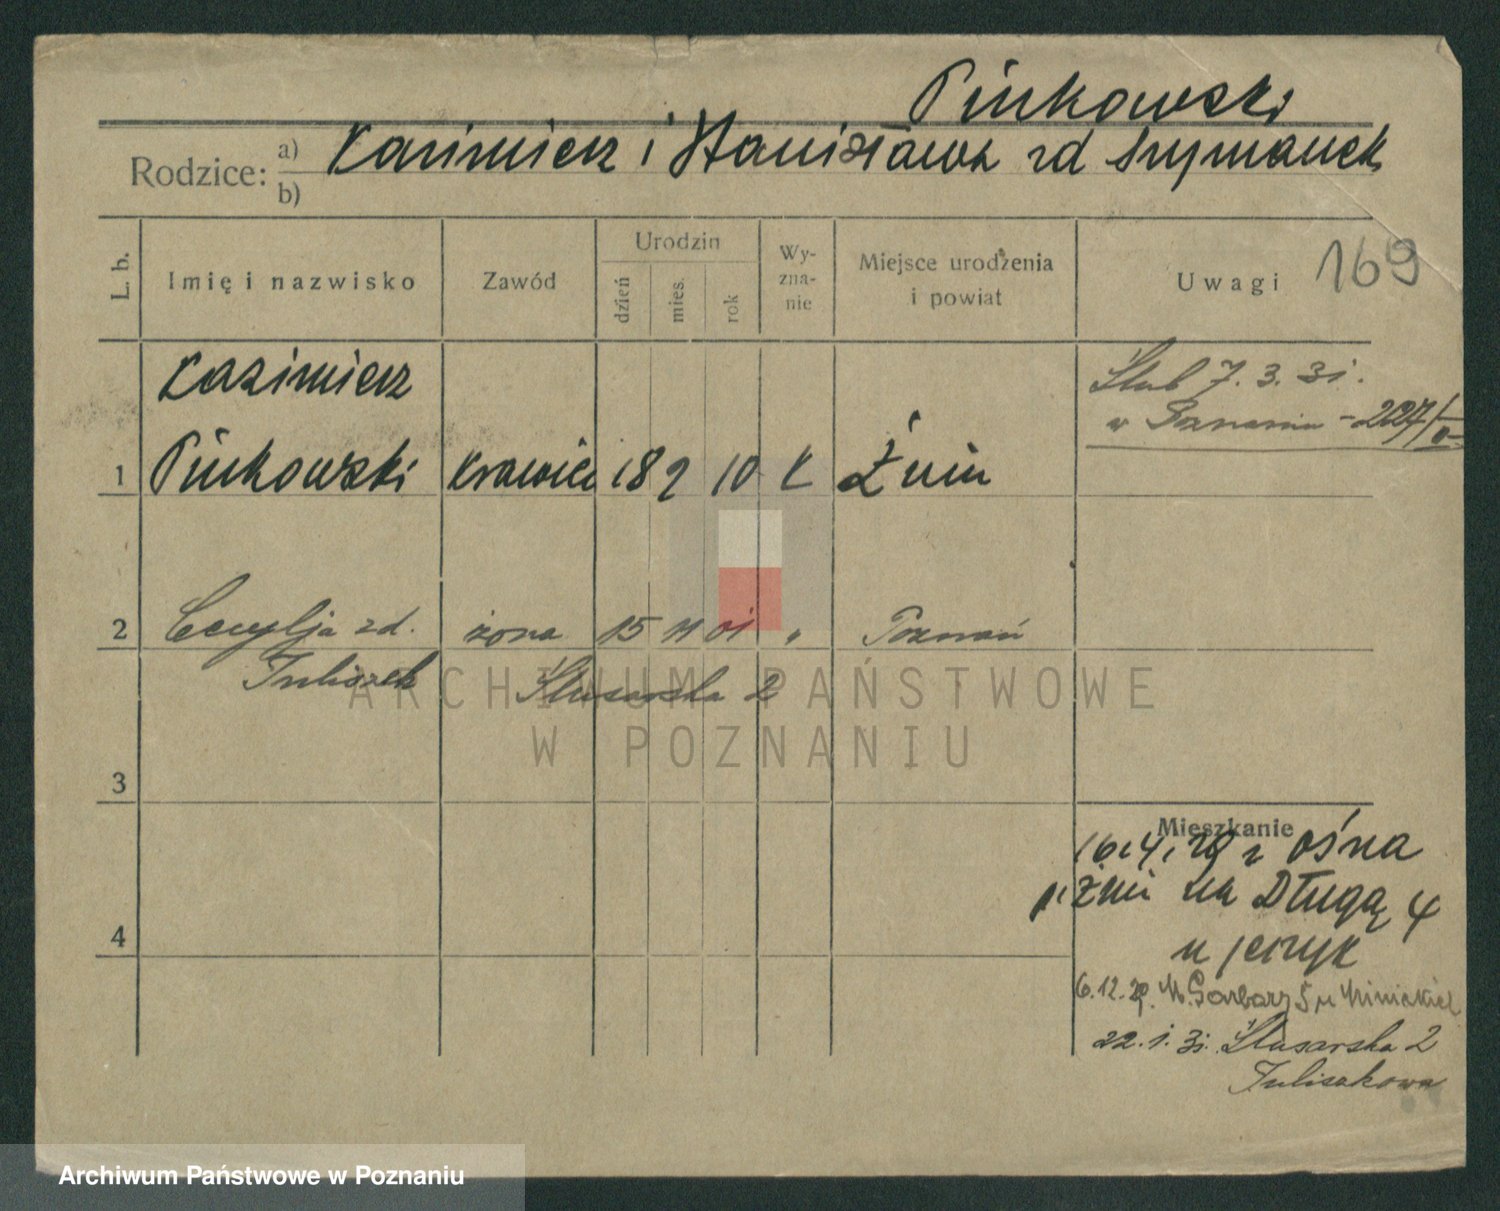 Piukowski
Rodzice: a) b) Kazimierz i Stanisława zd Szymanek
L. b. Imię i nazwisko Zawód Urodzin dzień mies. rok Wyznanie Miejsce urodzenia i powiat Uwagi 169
Kazimierz
Ślub 7. 3. 31.
w Poznaniu
1 Piukowski Krawiec 18 2 10 K Żnin
2 Cecylja zd. żona 15 11 01 " Poznań
Juliszek Ślusarska 2
ARCHIWUM PAŃSTWOWE
W POZNANIU
3
Mieszkanie
16.4.29 z Ośna
p. Żnin na Długą 4
4
u
6.12.29. W. Garbary 5 u
22.1.31. Ślusarska 2
Juliszkowa
Archiwum Państwowe w Poznaniu